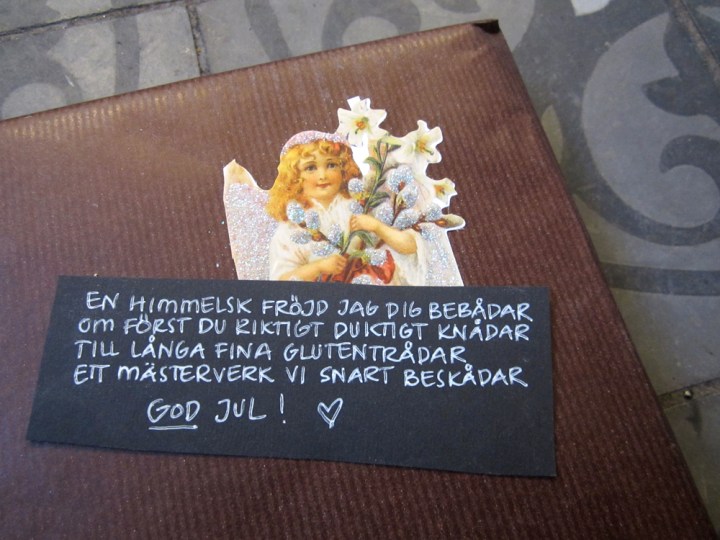 EN HIMMELSK FRÖJD JAG DIG BEBÅDAR
OM FÖRST DU RIKTIGT DUKTIGT KNÅDAR
TILL LÅNGA FINA GLUTENTRÅDAR
ETT MÄSTERVERK VI SNART BESKÅDAR
GOD JUL! ♡